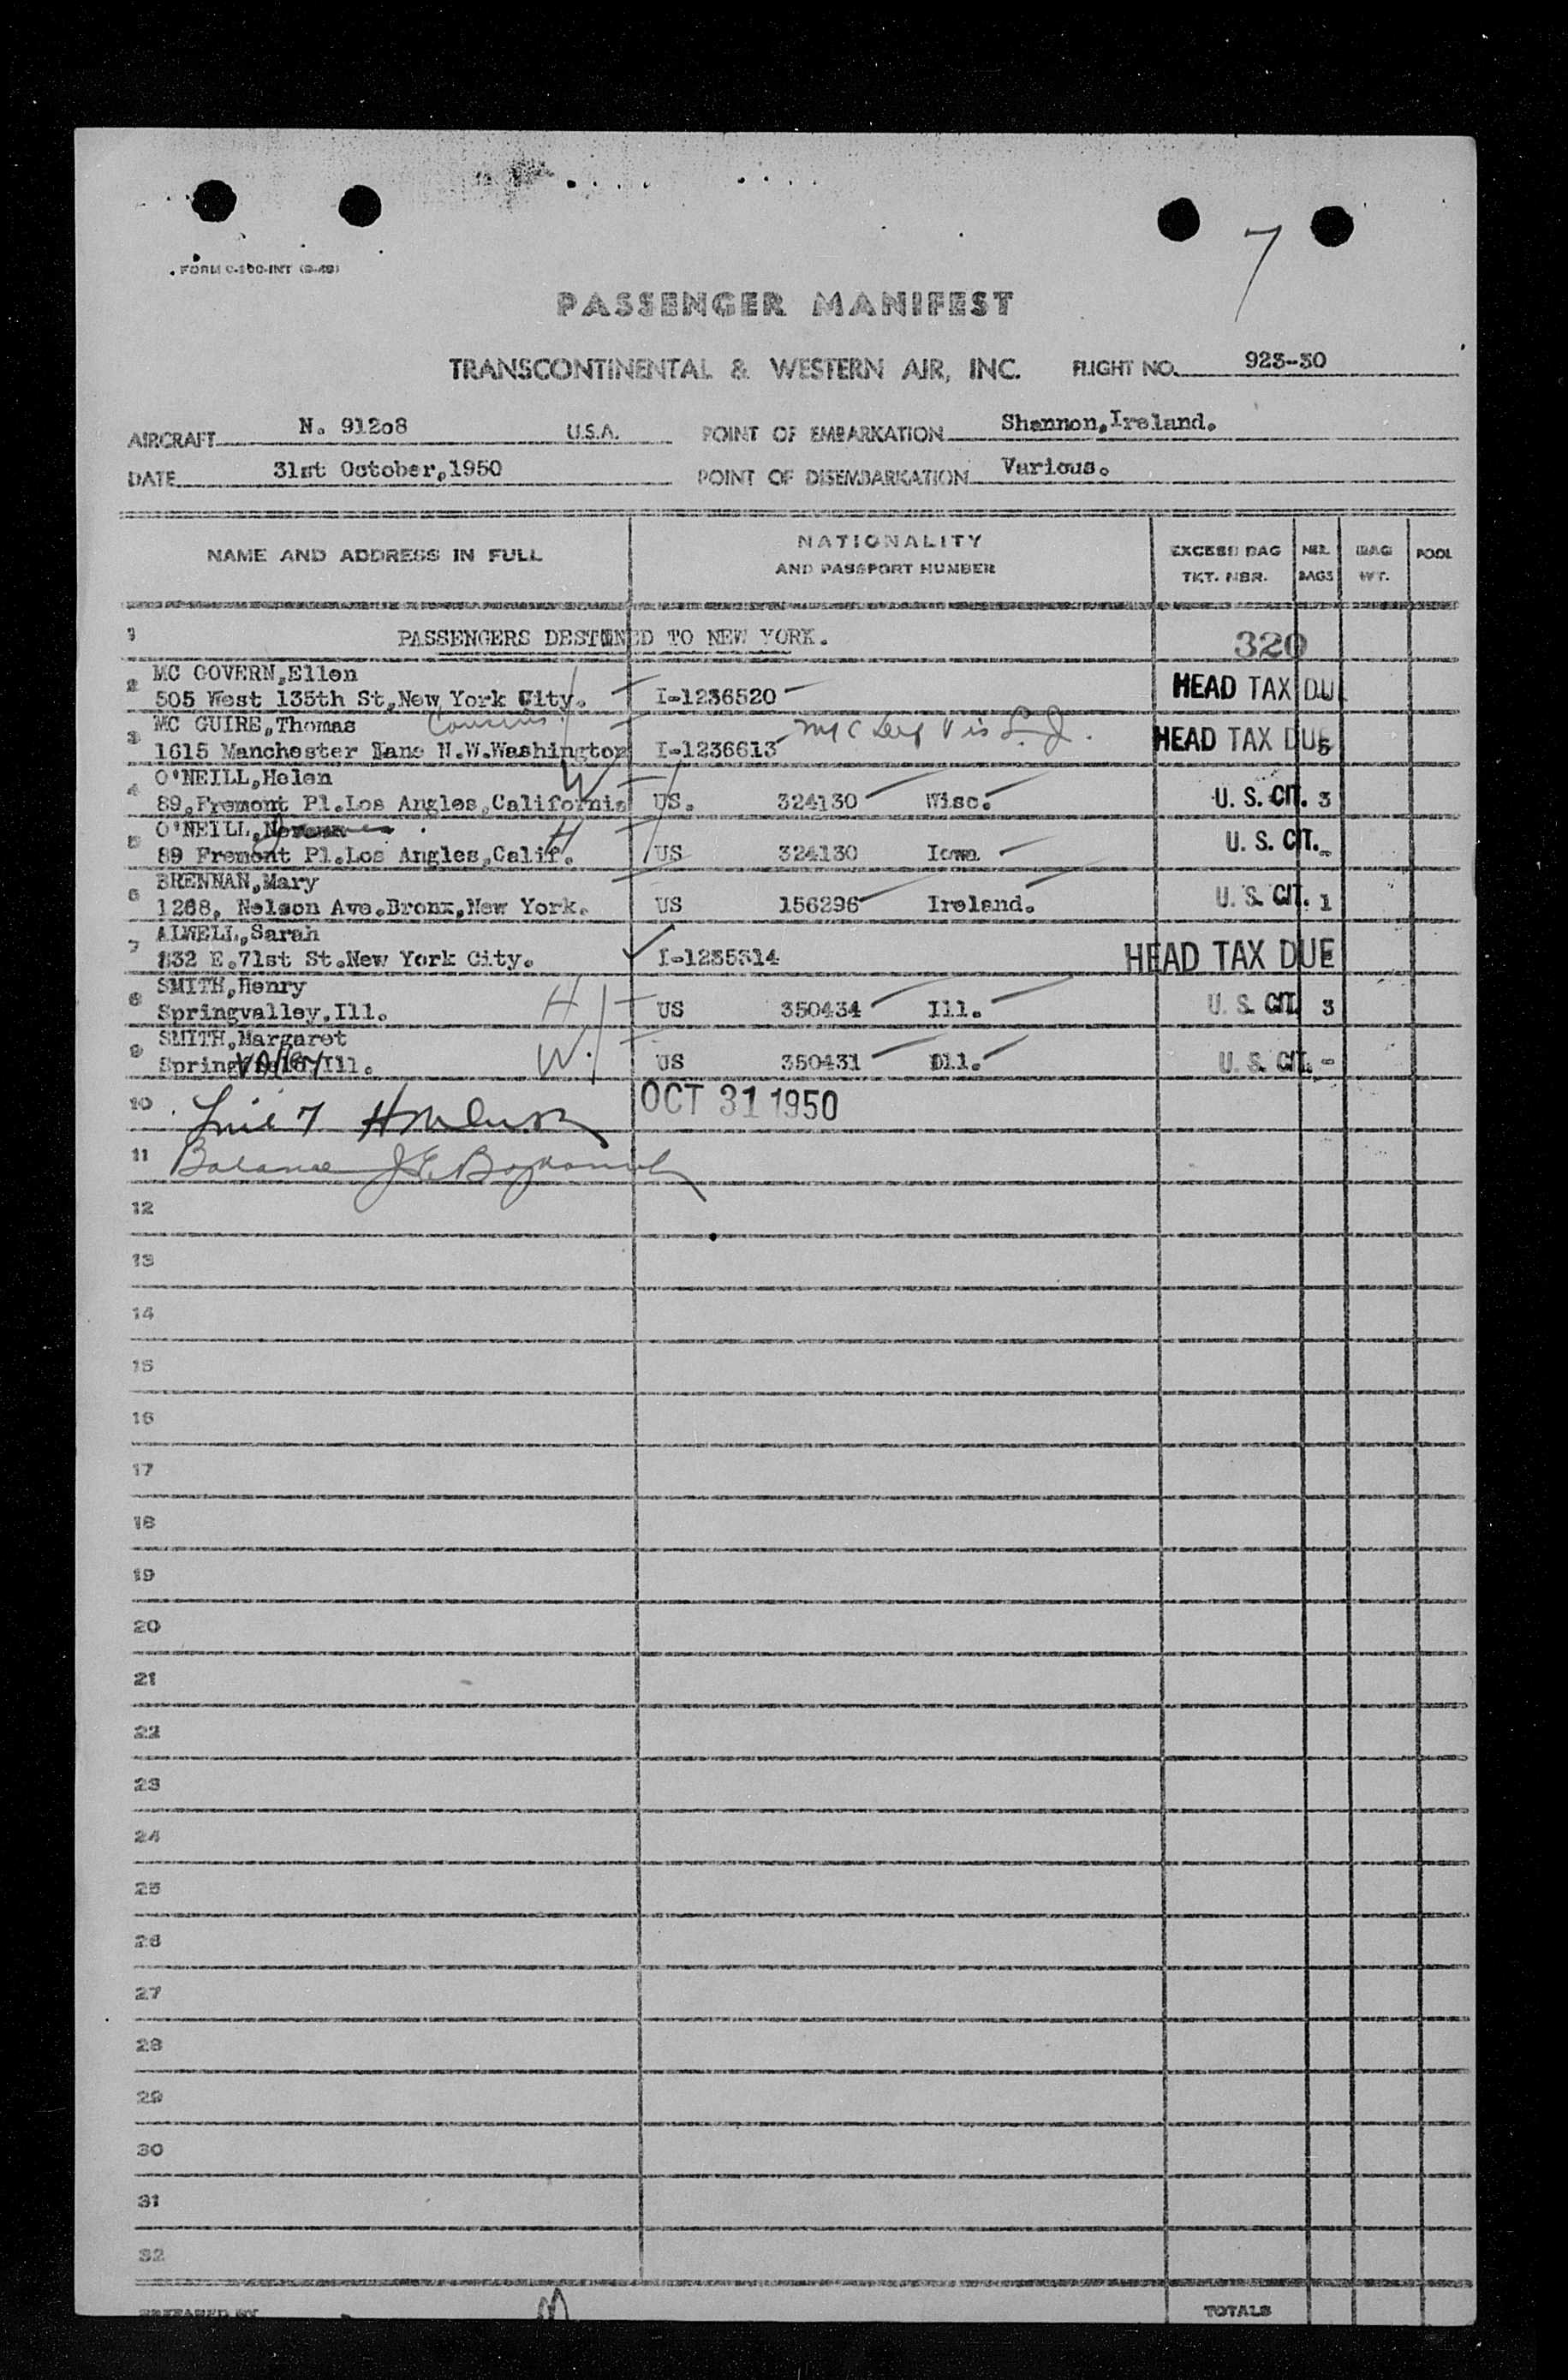 7
FORM C-100-INT (9-48)
PASSENGER MANIFEST
TRANSCONTINENTAL & WESTERN AIR, INC. FLIGHT NO. 923-30
AIRCRAFT N. 91208 U.S.A. POINT OF EMBARKATION Shannon,Ireland.
DATE 31st October,1950 POINT OF DISEMBARKATION Various.
NAME AND ADDRESS IN FULL NATIONALITY AND PASSPORT NUMBER EXCESS BAG TKT. NBR. NBR. BAGS BAG WT. POOL
1 PASSENGERS DESTINED TO NEW YORK. 320
MC GOVERN,Ellen
2 505 West 135th St,New York City. I-1236520 HEAD TAX DU
MC GUIRE,Thomas Cousins
3 1615 Manchester Lane N.W.Washington I-1236613 HEAD TAX DUE 5
O'NEILL,Helen W
4 89,Fremont Pl.Los Angles,California US. 324130 Wisc. U. S. CIT. 3
O'NEILL, H
5 89 Fremont Pl.Los Angles,Calif. US 324130 Iowa U. S. CIT. -
BRENNAN,Mary
6 1268, Nelson Ave.Bronx,New York. US 156296 Ireland. U. S. CIT. 1
ALWELL,Sarah
7 332 E.71st St.New York City. I-1235314 HEAD TAX DUE
SMITH,Henry H
8 Springvalley,Ill. US 350434 Ill. U. S. CIT. 3
SMITH,Margaret W.
9 Springvalley Ill. US 350431 Ill. U. S. CIT. -
10 Line 7 OCT 31 1950
11 Balance
12
13
14
15
16
17
18
19
20
21
22
23
24
25
26
27
28
29
30
31
32
PREPARED BY TOTALS